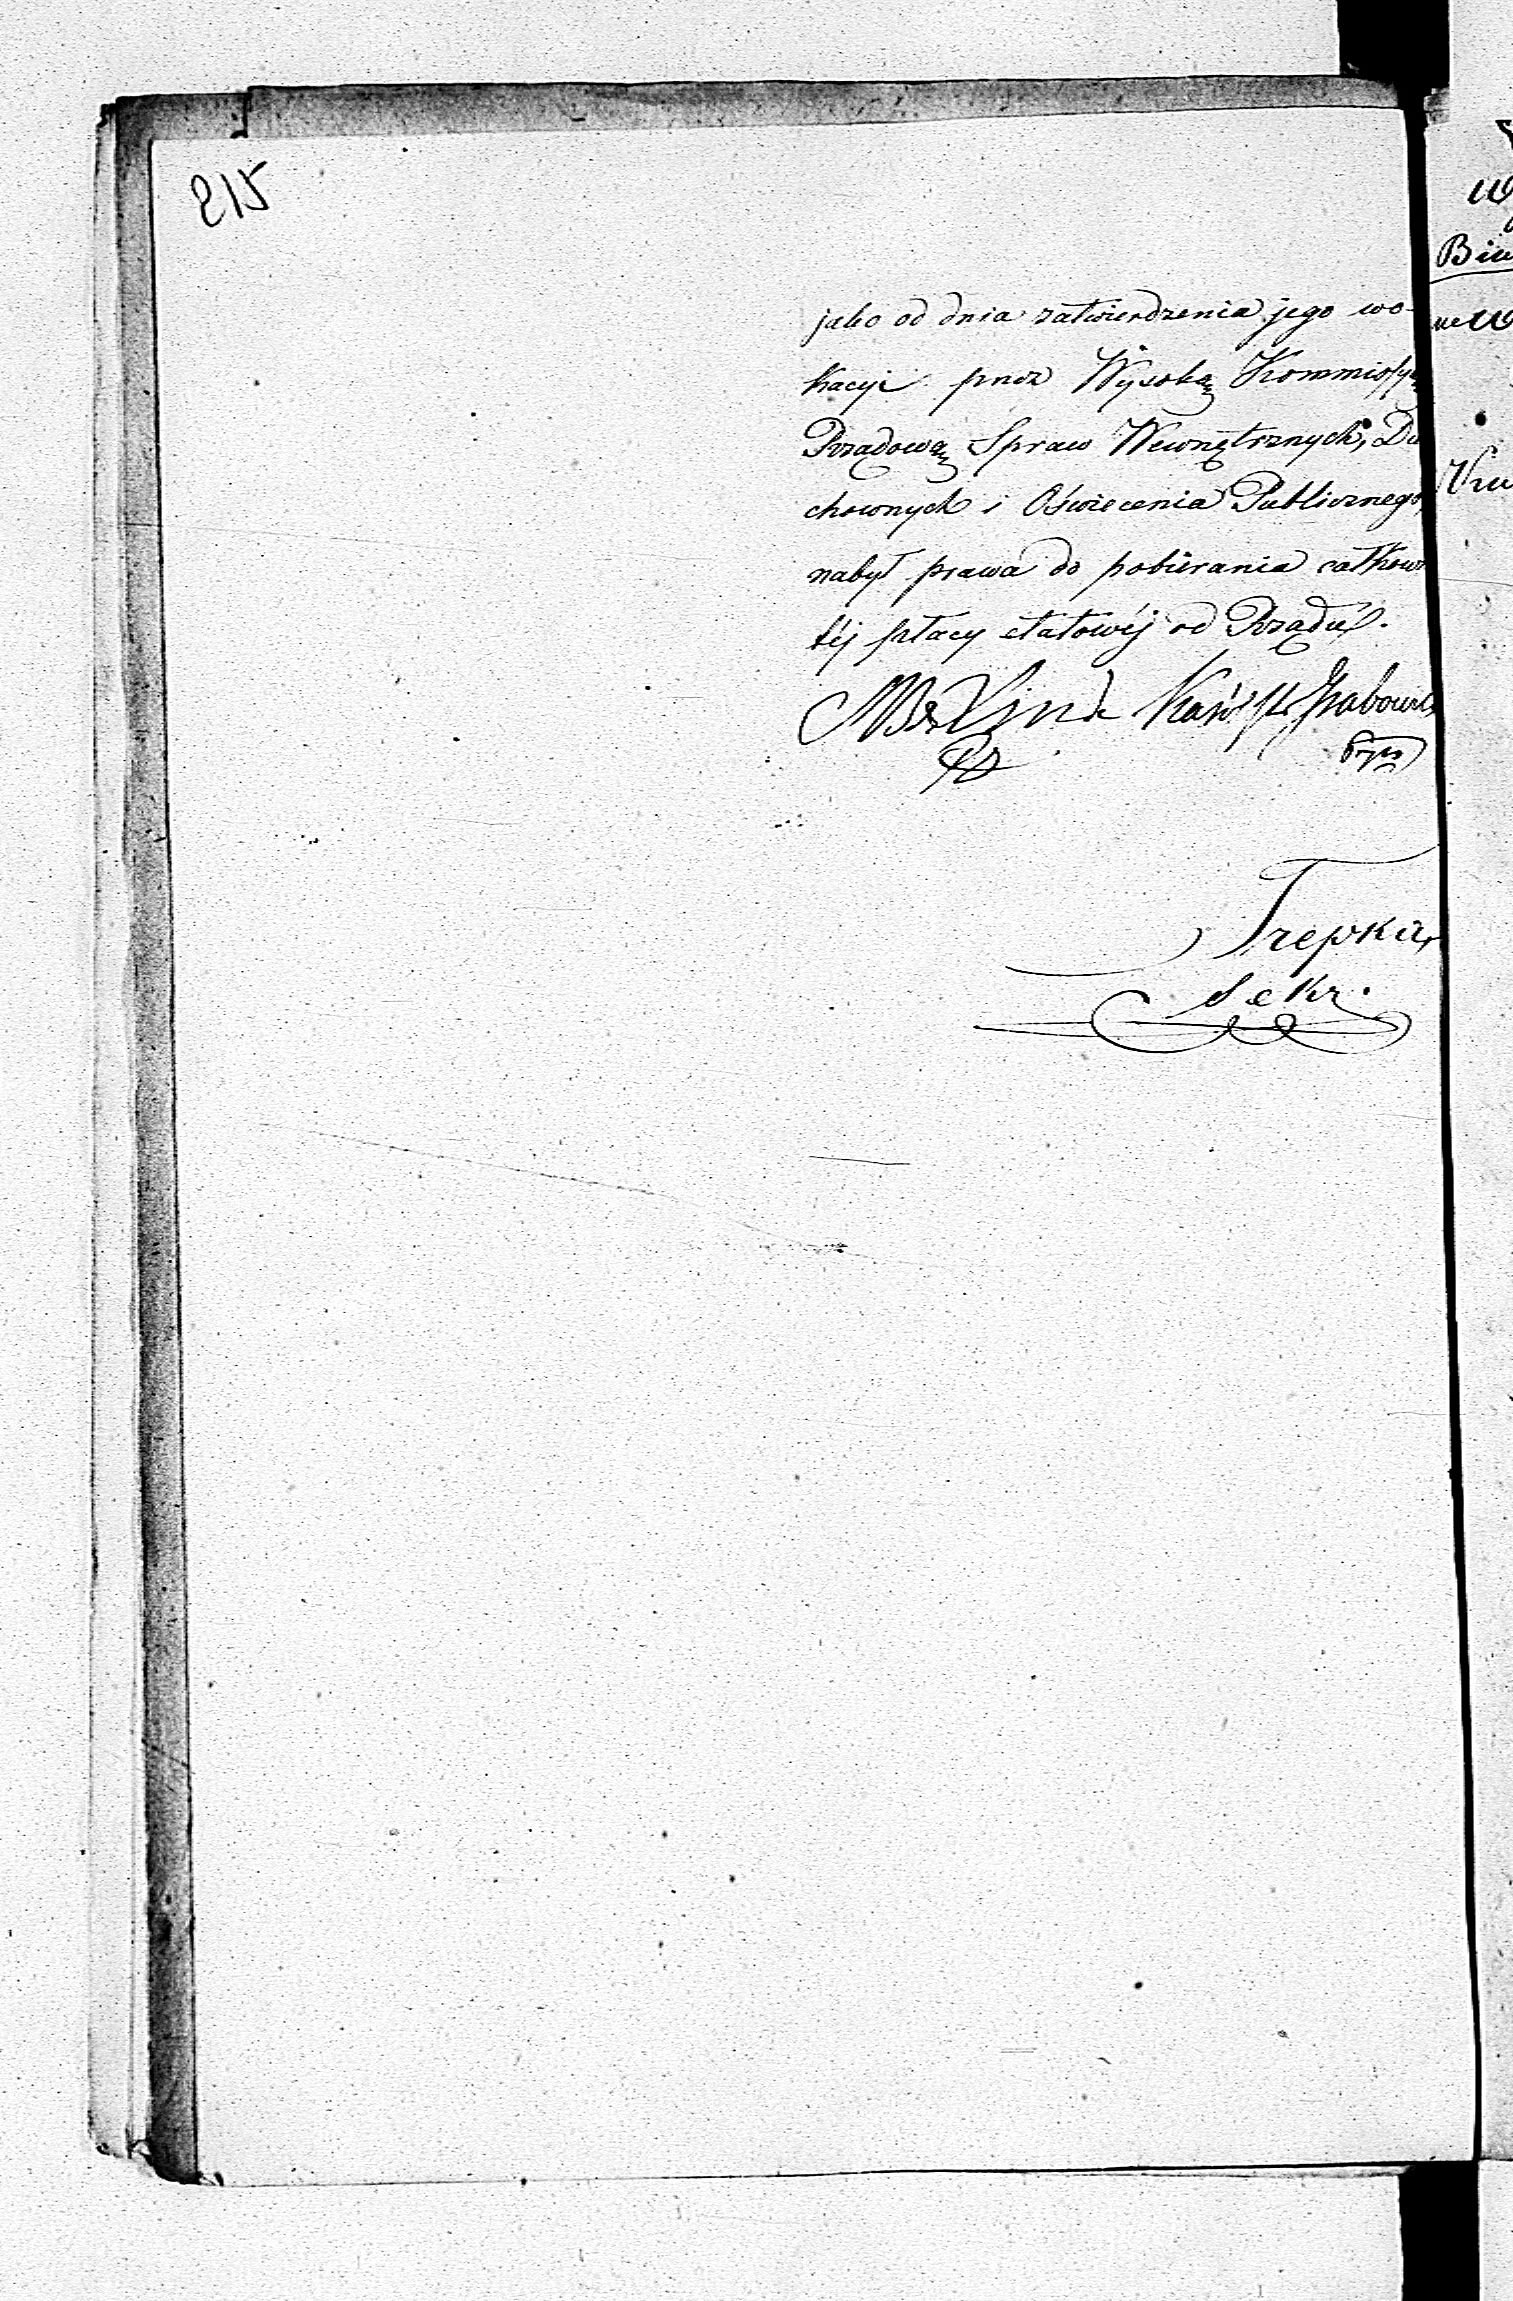 215
jako od dnia zatwierdzenia jego wo-
kacyi przez Wysoką Kommissyą
Rządową Spraw Wewnętrznych, Du
chownych i Oświecenia Publicznego,
nabył prawa do pobiérania całkowi
téj płacy etatowéj od Rządu.
Linde
Trepka,
Sekr.
Biu